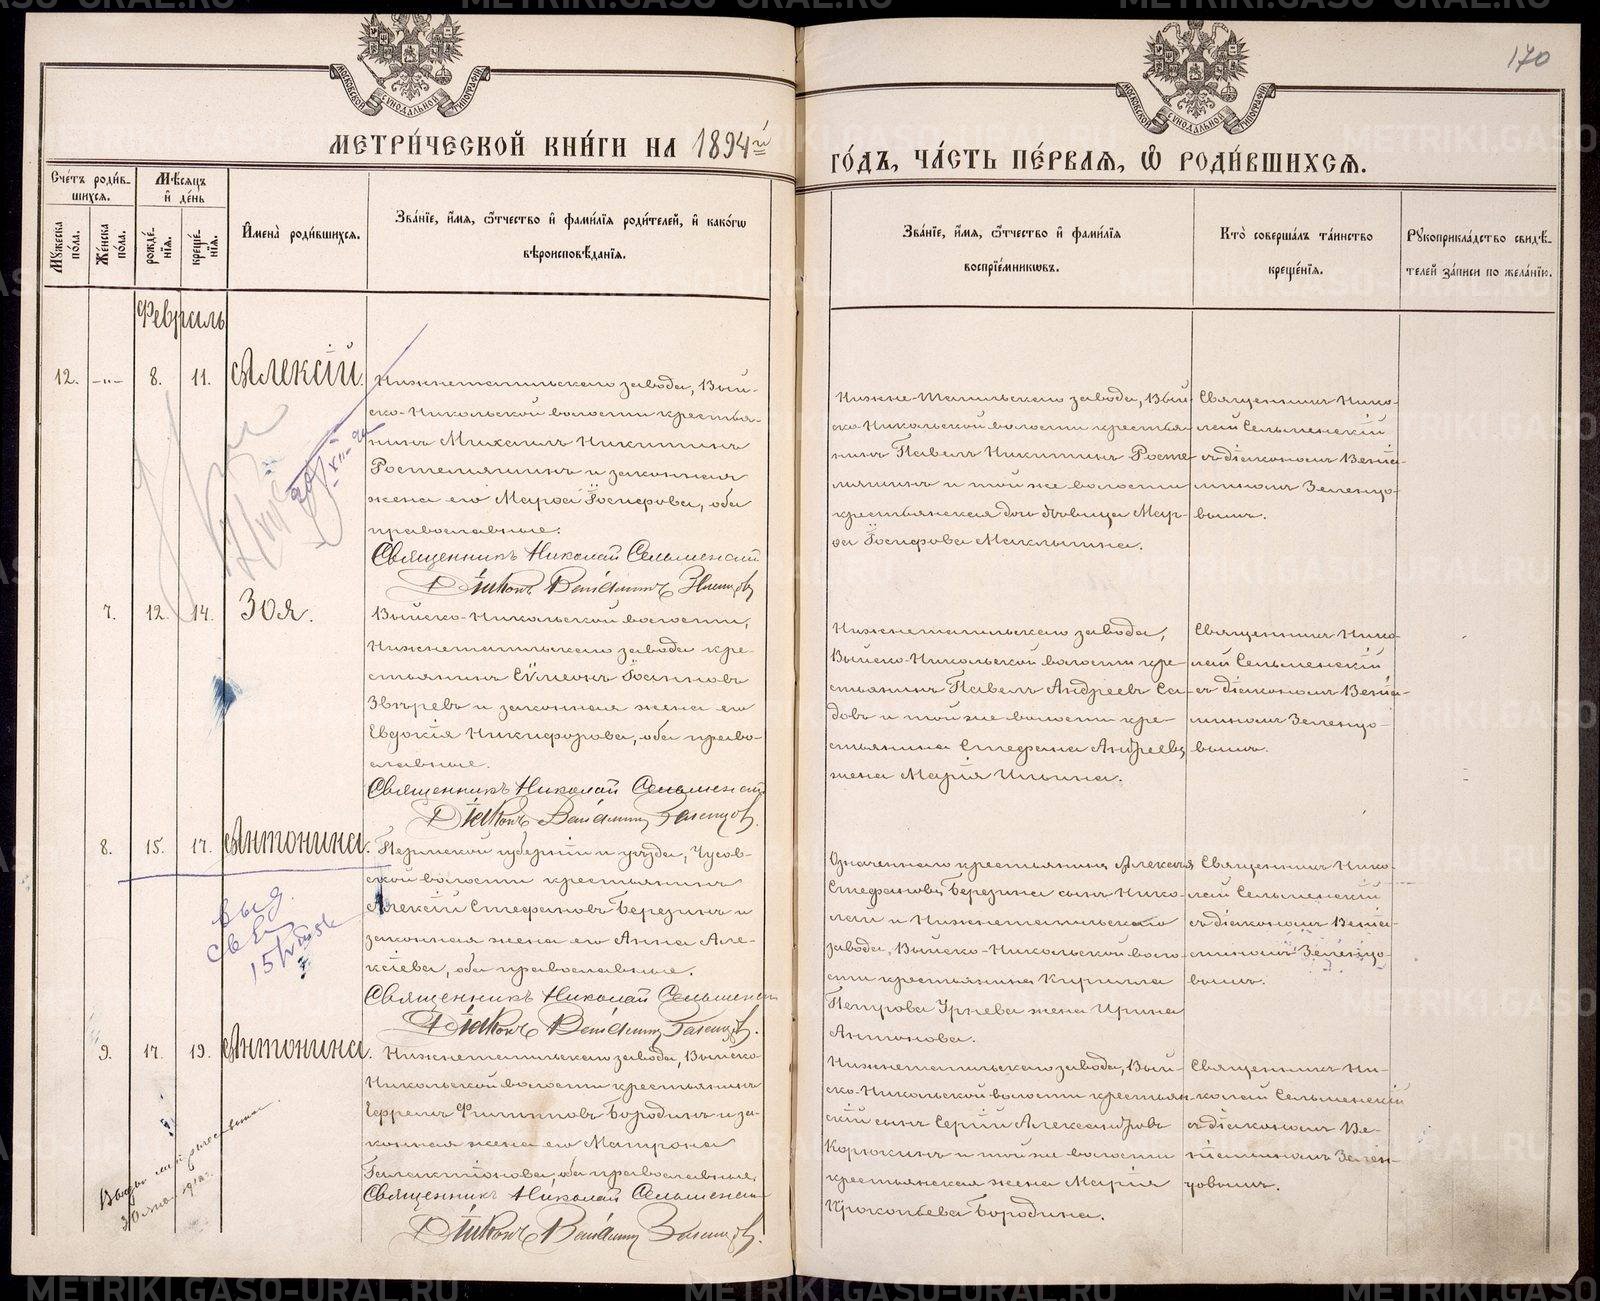 170
МОСКОВСКОЙ СѴНОДАЛЬНОЙ ТИПОГРАФІИ
МОСКОВСКОЙ СѴНОДАЛЬНОЙ ТИПОГРАФІИ
МЕТРИ́ЧЕСКОЙ КНИ́ГИ НА 1894й
ГО́ДЪ, ЧА́СТЬ ПЕ́РВАѦ, Ѡ҆ РОДИ́ВШИХСѦ.
Сче́тъ роди́в-
шихсѧ.
Мѣ́сѧцъ
и҆ де́нь
Мꙋ́жеска
по́ла.
Же́нска
по́ла.
рожде́-
нїѧ.
креще́-
нїѧ.
И҆мена̀ роди́вшихсѧ.
Зва́нїе, и҆́мѧ, ѻ҆́тчество и҆ фами́лїѧ роди́телей, и҆ како́гѡ
вѣроисповѣ́данїѧ.
Зва́нїе, и҆́мѧ, ѻ҆́тчество и҆ фами́лїѧ
воспрїе́мникѡвъ.
Кто̀ соверша́лъ та́инство
креще́нїѧ.
Рꙋкоприкла́дство свидѣ́-
телей за́писи по жела́нїю.
Февраль
12. -„- 8. 11. Алексій.
Нижнетагильскаго завода, Вый-
ско-Никольской волости крестья-
нинъ Михаилъ Никитинъ
Ростепяшинъ и законная
жена его Марѳа Іосифова, оба
православные.
Священникъ Николай Сельменскій
Діаконъ Веніаминъ Зеленцовъ
Нижне-Тагильскаго завода, Вый
ско-Никольской волости крестья-
нинъ Павелъ Никитинъ Росте
пяшинъ и той же волости
крестьянская дочь дѣвица Мар-
ѳа Іосифова Маклыгина.
Священникъ Нико-
лай Сельменскій
съ діакономъ Веніа-
миномъ Зеленцо-
вымъ.
7. 12. 14. Зоя.
Выйско-Никольской волости,
Нижнетагильскаго завода кре-
стьянинъ Сѵмеонъ Іоанновъ
Звѣревъ и законная жена его
Евдокія Никифорова, оба право-
славные.
Священникъ Николай Сельменскій
Діаконъ Веніаминъ Зеленцовъ.
Нижнетагильскаго завода,
Выйско-Никольской волости кре-
стьянинъ Павелъ Андреевъ Са-
довъ и той же волости кре-
стьянина Стефана Андреева
жена Марія Ильина.
Священникъ Нико-
лай Сельменскій
съ діакономъ Веніа-
миномъ Зеленцо-
вымъ.
8. 15. 17. Антонина.
Пермской губерніи и уѣзда, Чусов-
ской волости крестьянинъ
Алексій Стефановъ Березинъ и
законная жена его Анна Але-
ксіева, оба православные.
Священникъ Николай Сельменскій
Діаконъ Веніаминъ Зеленцовъ.
Означеннаго крестьянина Алексія
Стефанова Березина сынъ Нико-
лай и Нижнетагильскаго
завода, Выйско-Никольской воло-
сти крестьянина Кирилла
Петрова Угнева жена Ирина
Антонова.
Священникъ Нико-
лай Сельменскій
съ діакономъ Веніа-
миномъ Зеленцо-
вымъ.
выд.
св
9. 17. 19. Антонина.
Нижнетагильскаго завода, Выйско
Никольской волости крестьянинъ
Ефремъ Филипповъ Бородинъ и за-
конная жена его Матрона
Галактіонова, оба православные.
Священникъ Николай Сельменскій
Діаконъ Веніаминъ Зеленцовъ.
Нижнетагильскаго завода, Вый-
ско-Никольской волости крестьян
скій сынъ Сергій Александровъ
Корюкинъ и той же волости
крестьянская жена Марія
Прокопьева Бородина.
Священникъ Ни-
колай Сельменскій
съ діакономъ Ве-
ніаминомъ Зелен-
цовымъ.
METRIKI.GASO-URAL.RU